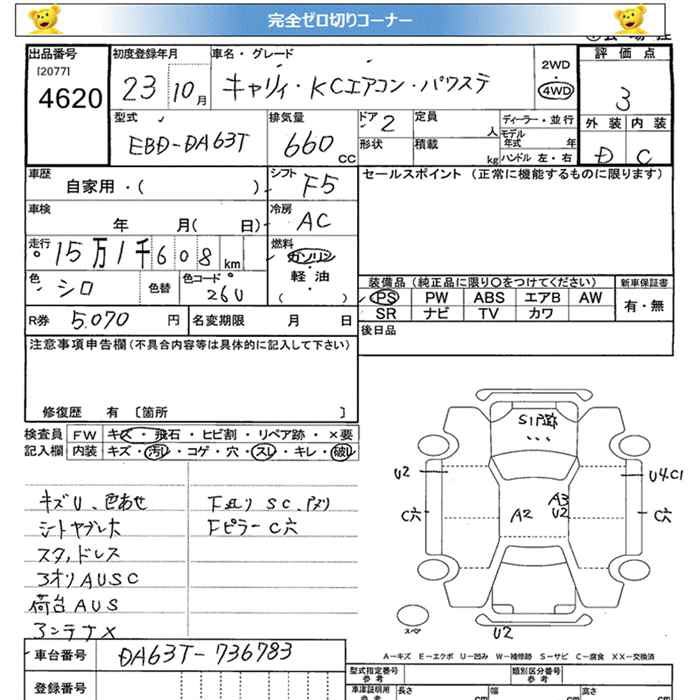 完全ゼロ切りコーナー
出品番号
[2077]
4620
初度登録年月
23 10月
車名・グレード
キャリィ・KCエアコン・パワステ
2WD
4WD
評価点
3
外装 内装
D C
型式
EBD-DA63T
排気量
660 CC
ドア 2
形状
定員 人
積載 kg
ディーラー・並行
モデル年式 年
ハンドル 左・右
車歴
自家用・( )
シフト F5
セールスポイント (正常に機能するものに限ります)
車検
年 月( 日)
冷房 AC
走行
15万1千608 km
燃料
ガソリン・
軽油
・
( )
色
シロ
色替
色コード
26U
装備品(純正品に限り○をつけてください)
新車保証書
PS PW ABS エアB AW
SR ナビ TV カワ
有・無
R券 5,070 円
名変期限 月 日
後日品
注意事項申告欄(不具合内容等は具体的に記入して下さい)
修復歴 有 [箇所 ]
検査員 FW キズ・飛石・ヒビ割・リペア跡・×要
記入欄 内装 キズ・汚レ・コゲ・穴・スレ・キレ・破レ
キズU、色あせ
シートヤブレ大
スタッドレス
アオリAUSC
荷台AUS
アンテナ×
Fピラー C穴
S1P跡
U2
U4.C1
C穴
C穴
A2
A3
U2
スペア
U2
A-キズ E-エクボ U-凹み W-補修跡 S-サビ C-腐食 XX-交換済
車台番号 DA63T-736783
登録番号
型式指定番号
参考
類別区分番号
参考
車庫証明用
参考
長さ cm
幅 cm
高さ cm